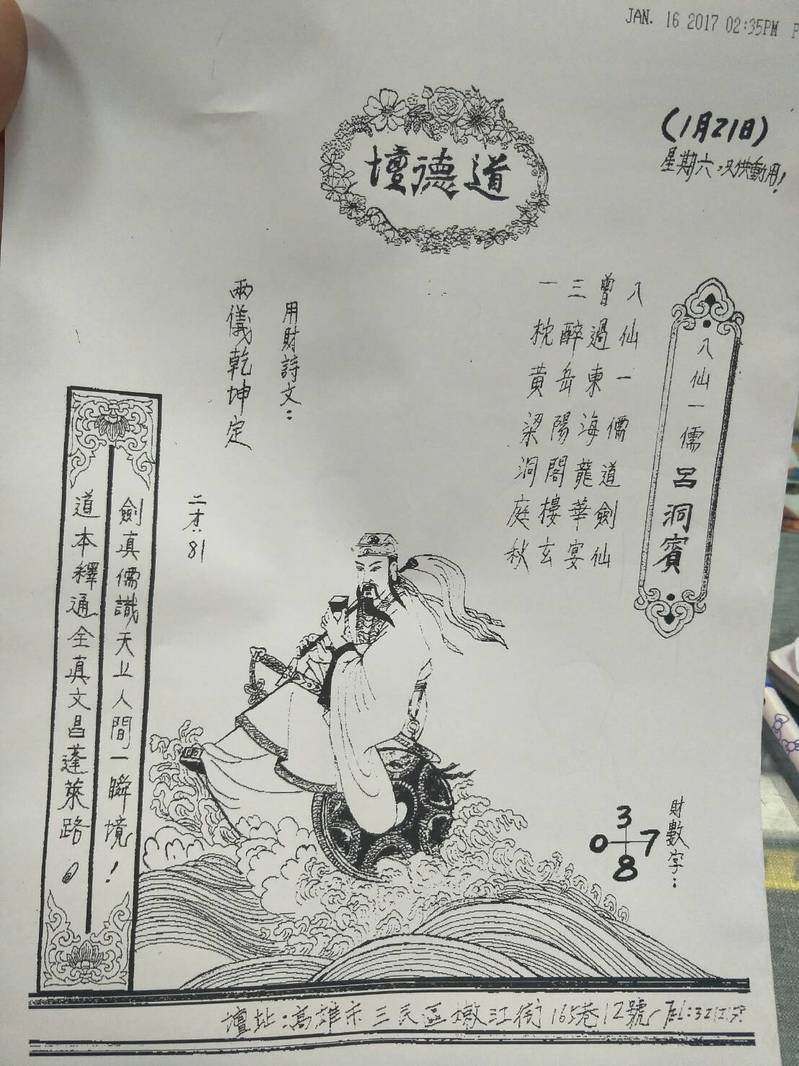 JAN. 16 2017 02:35PM P
(1月21日)
星期六，次供動用！
道德壇
八仙一儒 呂洞賓
八仙一儒道劍仙
曾過東海龍華宴
三醉岳陽閣樓玄
一枕黃粱洞庭秋
用財詩文：
兩儀乾坤定
二六 81
劍真儒識天上人間一瞬境！
道本釋通全真文昌蓬萊路。
財數字：
3
0 7
8
壇址：高雄市三民區墩江街165巷12號